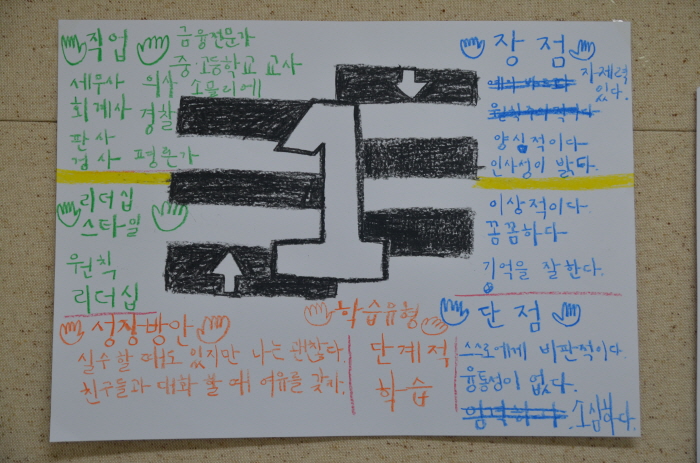 직업
금융전문가
중·고등학교 교사
세무사 의사 소믈리에
회계사 경찰
판사
검사 평론가
리더십
스타일
원칙
리더십
1
장점
자제력
있다.
양심적이다
인사성이 밝다.
이상적이다.
꼼꼼하다
기억을 잘한다.
성장방안
실수 할 때도 있지만 나는 괜찮다.
친구들과 대화 할 때 여유를 갖자.
학습유형
단계적
학습
단점
스스로에게 비판적이다.
융통성이 없다.
소심하다.